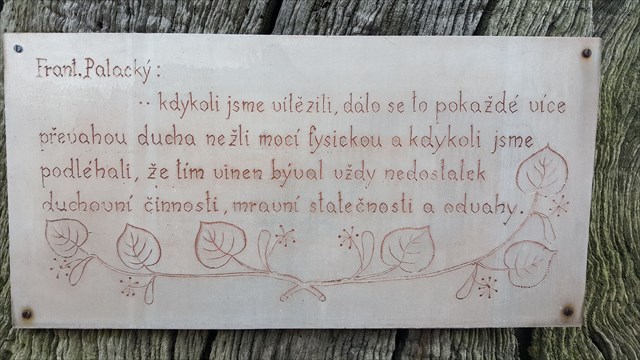 Frant. Palacký:
·· kdykoli jsme vítězili, dálo se to pokaždé více
převahou ducha nežli mocí fysickou a kdykoli jsme
podléhali, že tím vinen býval vždy nedostatek
duchovní činnosti, mravní statečnosti a odvahy.